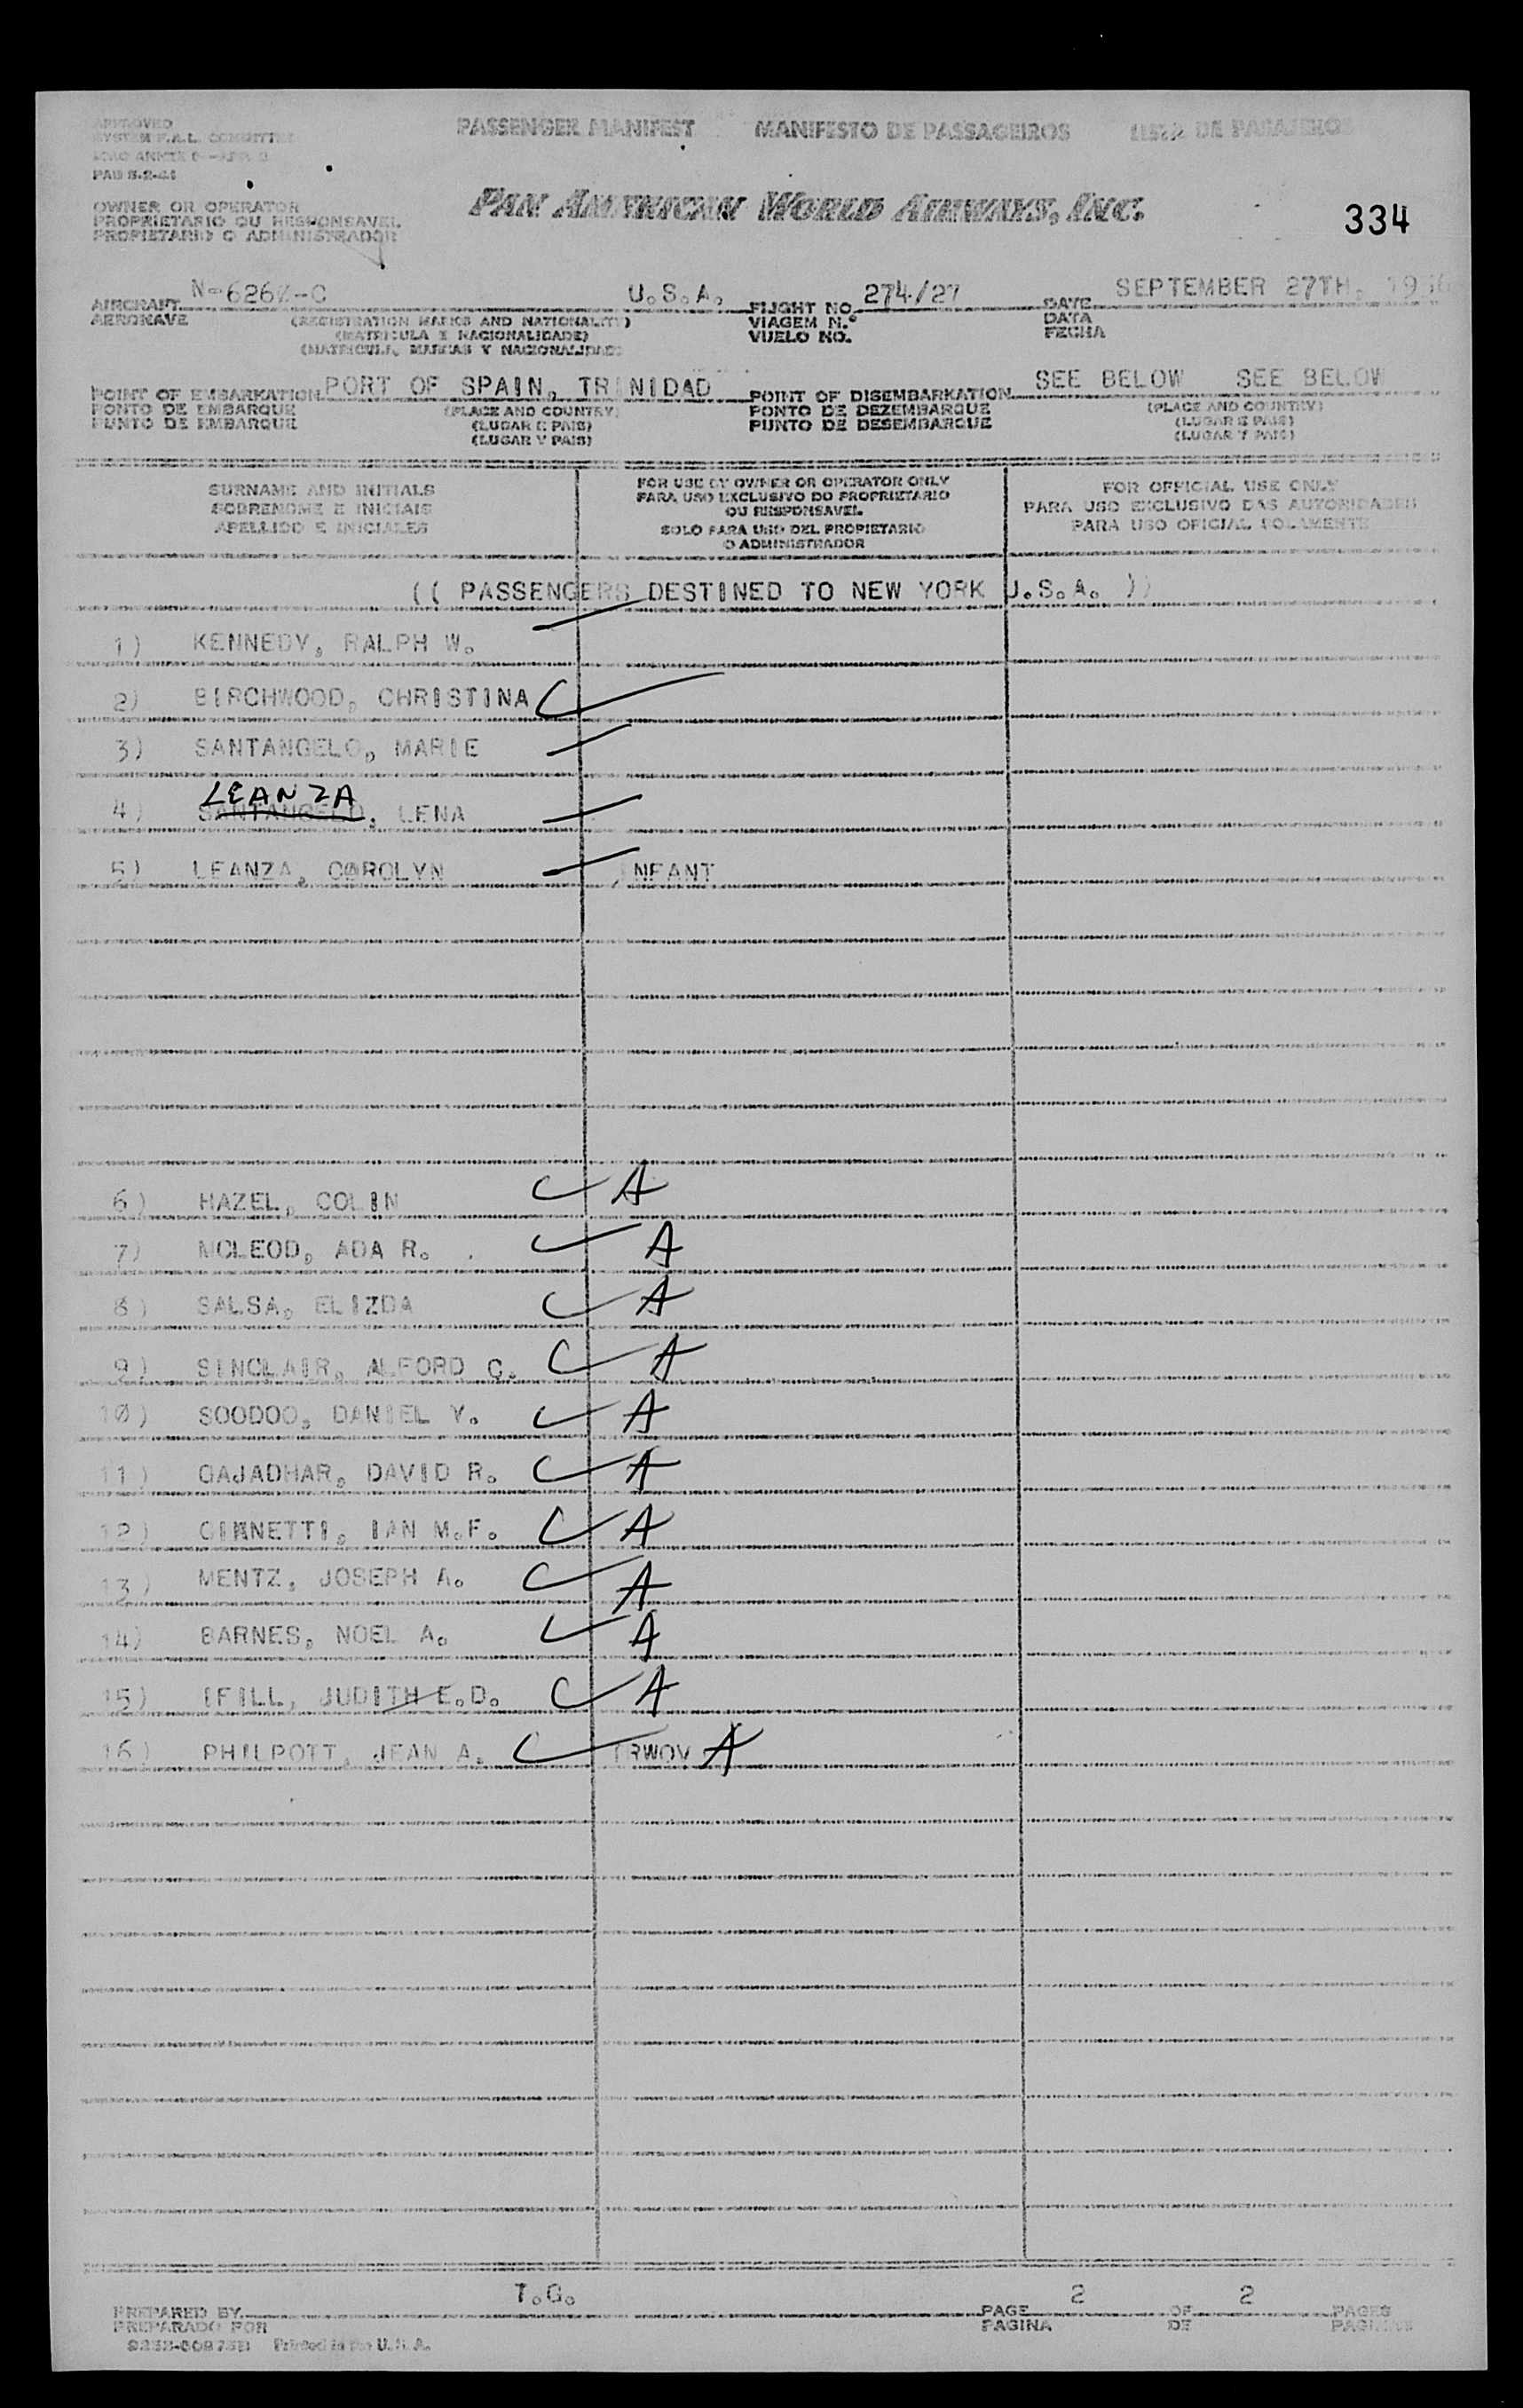 APPROVED
SYSTEM F.A.L. COMMITTEE
PAN AMERICAN WORLD AIRWAYS, INC.
PASSENGER MANIFEST MANIFESTO DE PASSAGEIROS LISTA DE PASAJEROS
334
OWNER OR OPERATOR
PROPRIETARIO OU RESPONSAVEL
PROPIETARIO O ADMINISTRADOR
AIRCRAFT U.S.A. FLIGHT NO. 274/27 DATE SEPTEMBER 27TH,
AERONAVE (REGISTRATION MARKS AND NATIONALITY) VIAGEM N.º DATA
(MATRICULA E NACIONALIDADE) VUELO NO. FECHA
(MATRICULA, MARCAS Y NACIONALIDAD)
POINT OF EMBARKATION PORT OF SPAIN, TRINIDAD POINT OF DISEMBARKATION SEE BELOW SEE BELOW
PONTO DE EMBARQUE (PLACE AND COUNTRY) PONTO DE DEZEMBARQUE (PLACE AND COUNTRY)
PUNTO DE EMBARQUE (LUGAR E PAIS) PUNTO DE DESEMBARQUE (LUGAR E PAIS)
(LUGAR Y PAIS) (LUGAR Y PAIS)
SURNAME AND INITIALS
SOBRENOME E INICIAIS
APELLIDO E INICIALES
FOR USE BY OWNER OR OPERATOR ONLY
PARA USO EXCLUSIVO DO PROPRIETARIO
OU RESPONSAVEL
SOLO PARA USO DEL PROPIETARIO
O ADMINISTRADOR
FOR OFFICIAL USE ONLY
PARA USO EXCLUSIVO DAS AUTORIDADES
PARA USO OFICIAL SOLAMENTE
(( PASSENGERS DESTINED TO NEW YORK U.S.A. ))
1) KENNEDY, RALPH W.
2) BIRCHWOOD, CHRISTINA
3) SANTANGELO, MARIE
LEANZA
4) SANTANGELO, LENA
5) LEANZA, CAROLYN INFANT
6) HAZEL, COLIN A
7) MCLEOD, ADA R. A
8) SALSA, ELIZDA A
9) SINCLAIR, ALFORD G. A
10) SOODOO, DANIEL V. A
11) GAJADHAR, DAVID R. A
12) GINNETTI, IAN M.F. A
13) MENTZ, JOSEPH A. A
14) BARNES, NOEL A. A
15) IFILL, JUDITH E.D. A
16) PHILPOTT, JEAN A. TRWOV A
T.G.
PREPARED BY PAGE 2 OF 2 PAGES
PREPARADO POR PAGINA DE PAGINAS
Printed in the U.S.A.